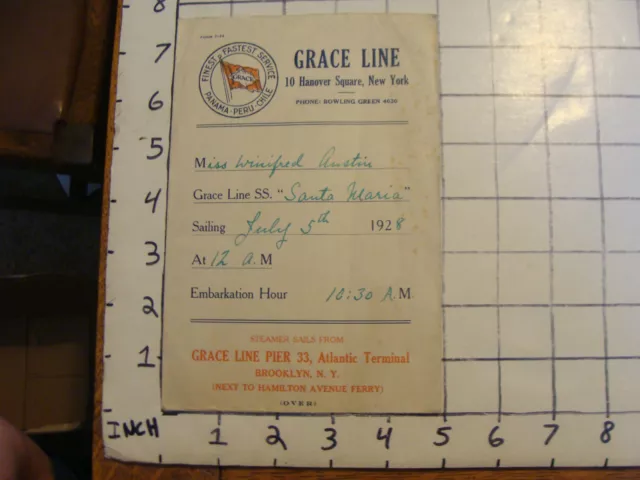 FINEST & FASTEST SERVICE
GRACE
PANAMA-PERU-CHILE
GRACE LINE
10 Hanover Square, New York
PHONE: BOWLING GREEN 4620
Miss Winifred Austin
Grace Line SS. "Santa Maria"
Sailing July 5th 1928
At 12 A.M
Embarkation Hour 10:30 A.M
STEAMER SAILS FROM
GRACE LINE PIER 33, Atlantic Terminal
BROOKLYN, N. Y.
(NEXT TO HAMILTON AVENUE FERRY)
(OVER)
8
7
6
5
4
3
2
1
INCH
1 2 3 4 5 6 7 8